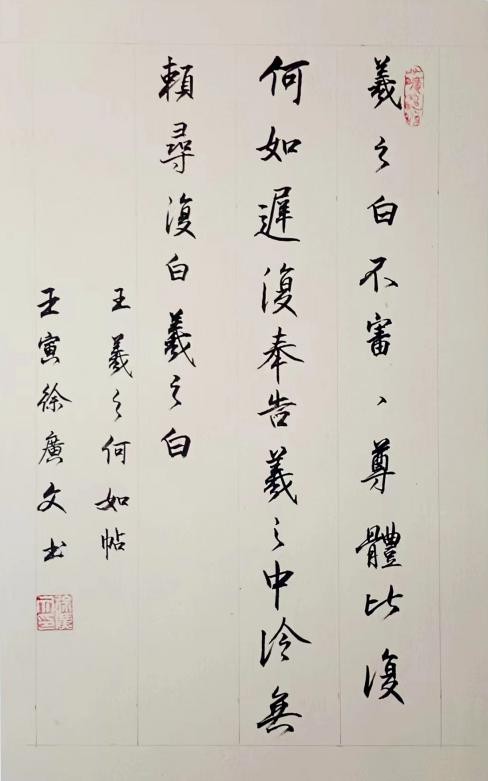 羲之白不審、尊體比復
何如遲復奉告羲之中冷無
賴尋復白羲之白
王羲之何如帖
壬寅徐廣文书